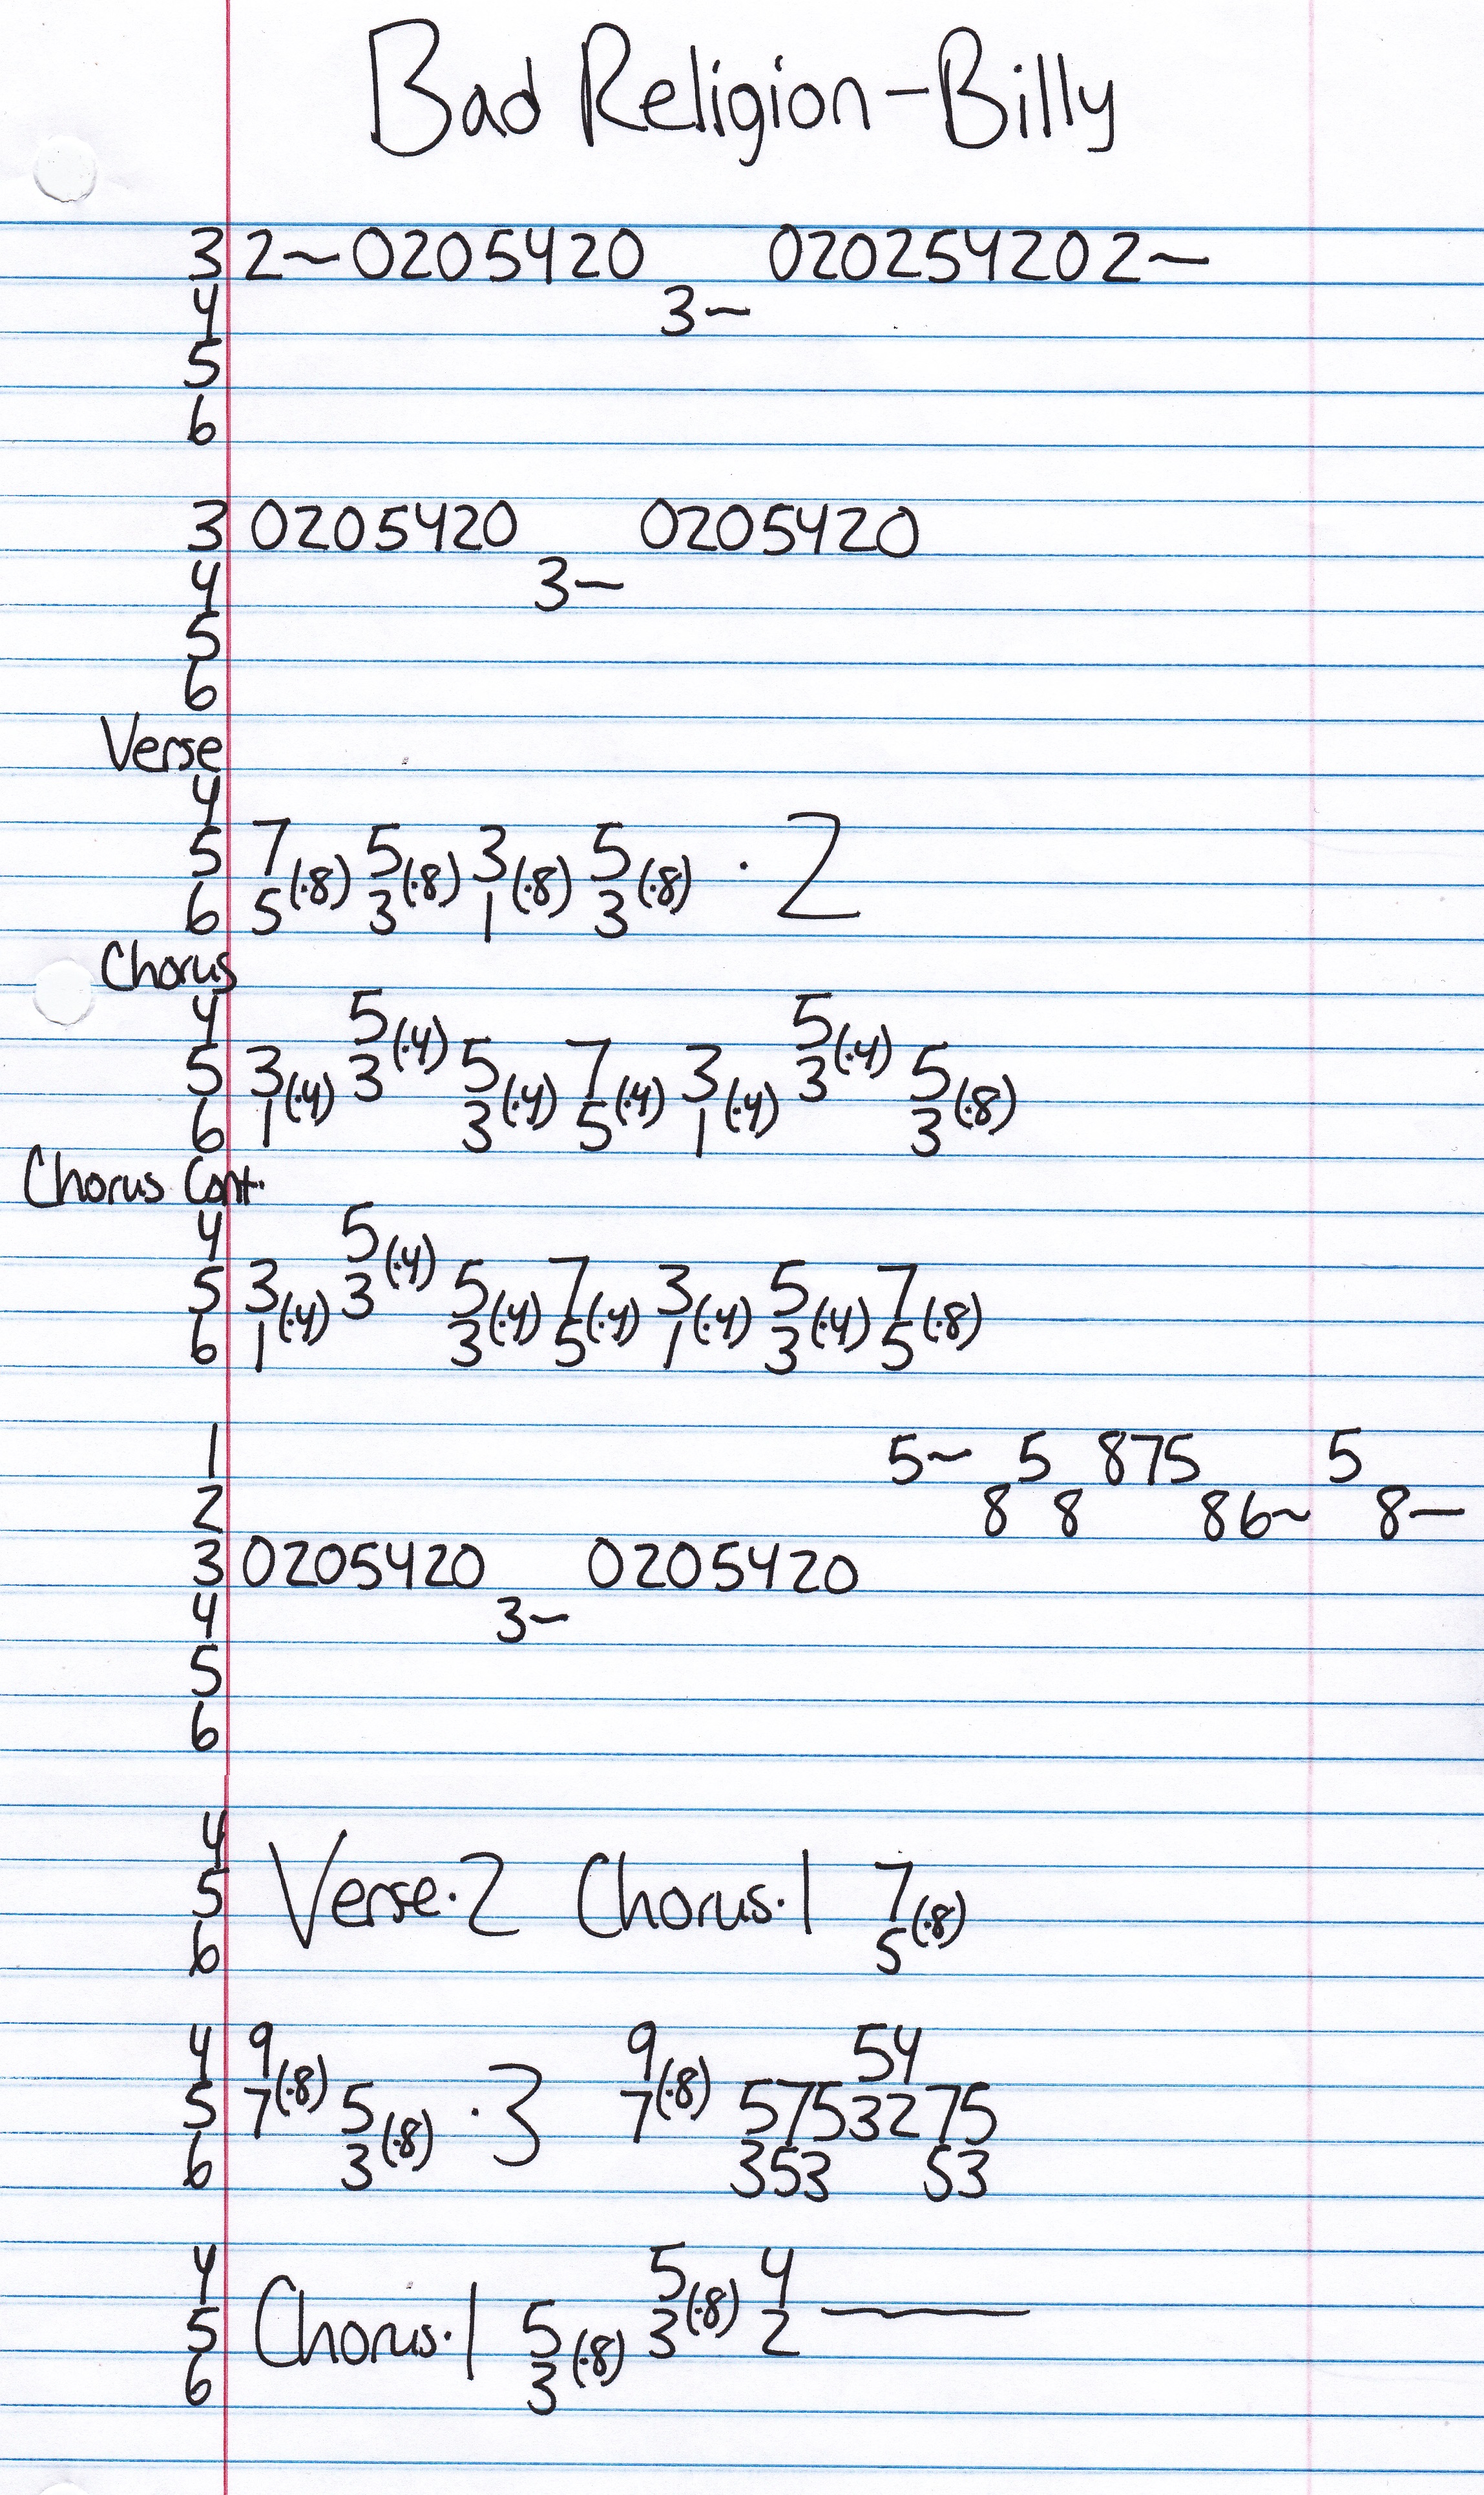 Bad Religion - Billy
3 2~0205420 020254202~
4 3~
5
6
3 0205420 0205420
4 3~
5
6
Verse
4
5 7(·8) 5(·8) 3(·8) 5(·8) · 2
6 5 3 1 3
Chorus
4 5(·4) 5(·4)
5 3(·4) 3 5(·4) 7(·4) 3(·4) 3 5(·8)
6 1 3 5 1 3
Chorus Cont.
4 5(·4)
5 3(·4) 3 5(·4) 7(·4) 3(·4) 5(·4) 7(·8)
6 1 3 5 1 3 5
1 5~ 5 875 5
2 8 8 86~ 8—
3 0205420 0205420
4 3~
5
6
4
5 Verse·2 Chorus·1 7(·8)
6 5
4 9 9 54
5 7(·8) 5(·8) ·3 7(·8) 5753275
6 3 353 53
4 5 4
5 Chorus·1 5(·8) 3(·8) 2 —
6 3